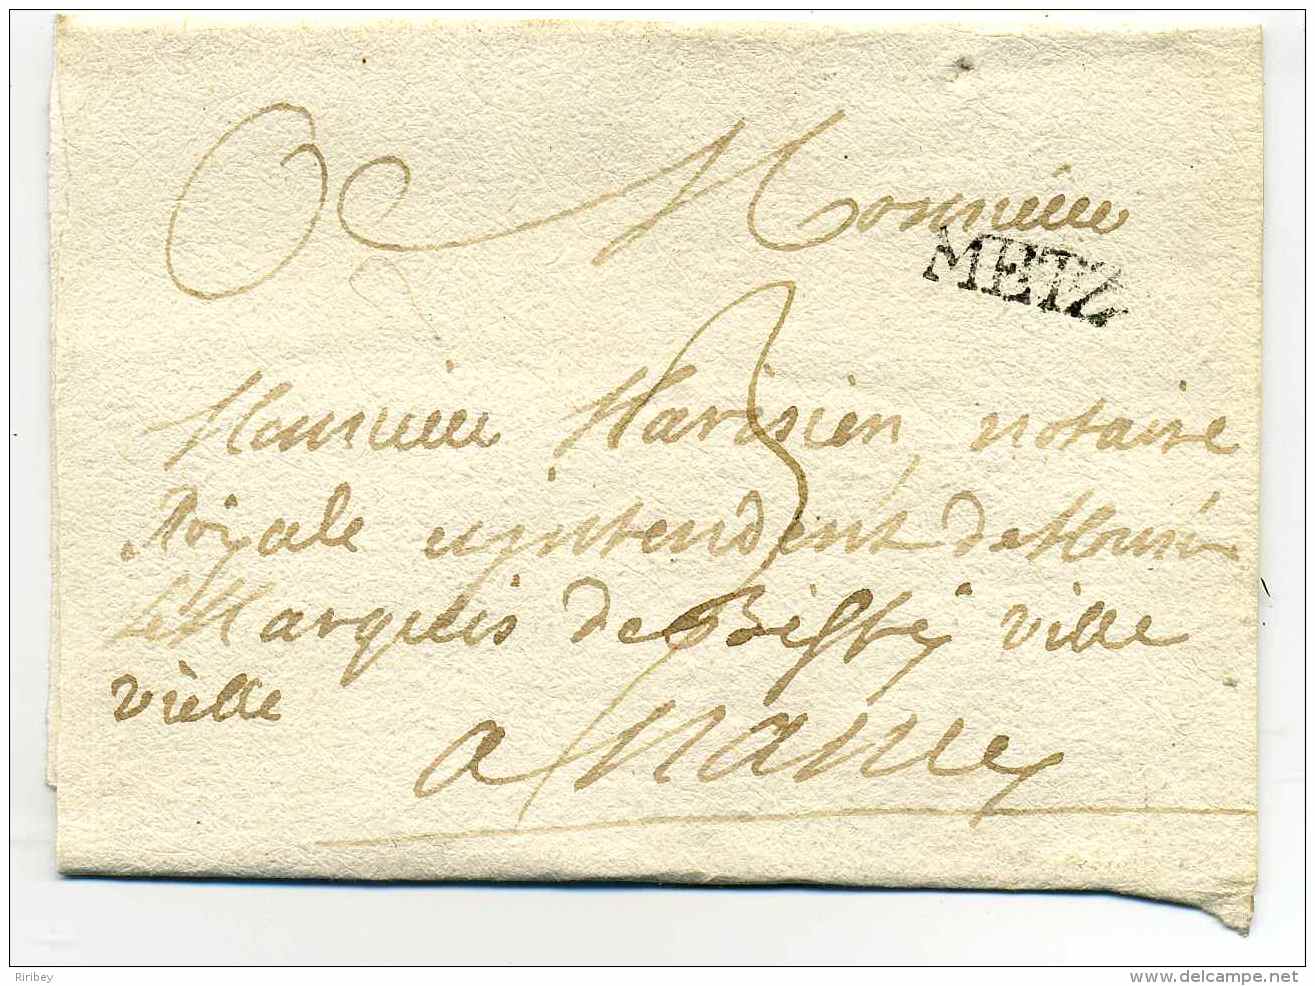 A Monsieur
METZ
Monsieur Marisien notaire
Royale e intendent de Monsieur
le Marquis de ville
vielle
a nancy
Riribey
delcampe.net